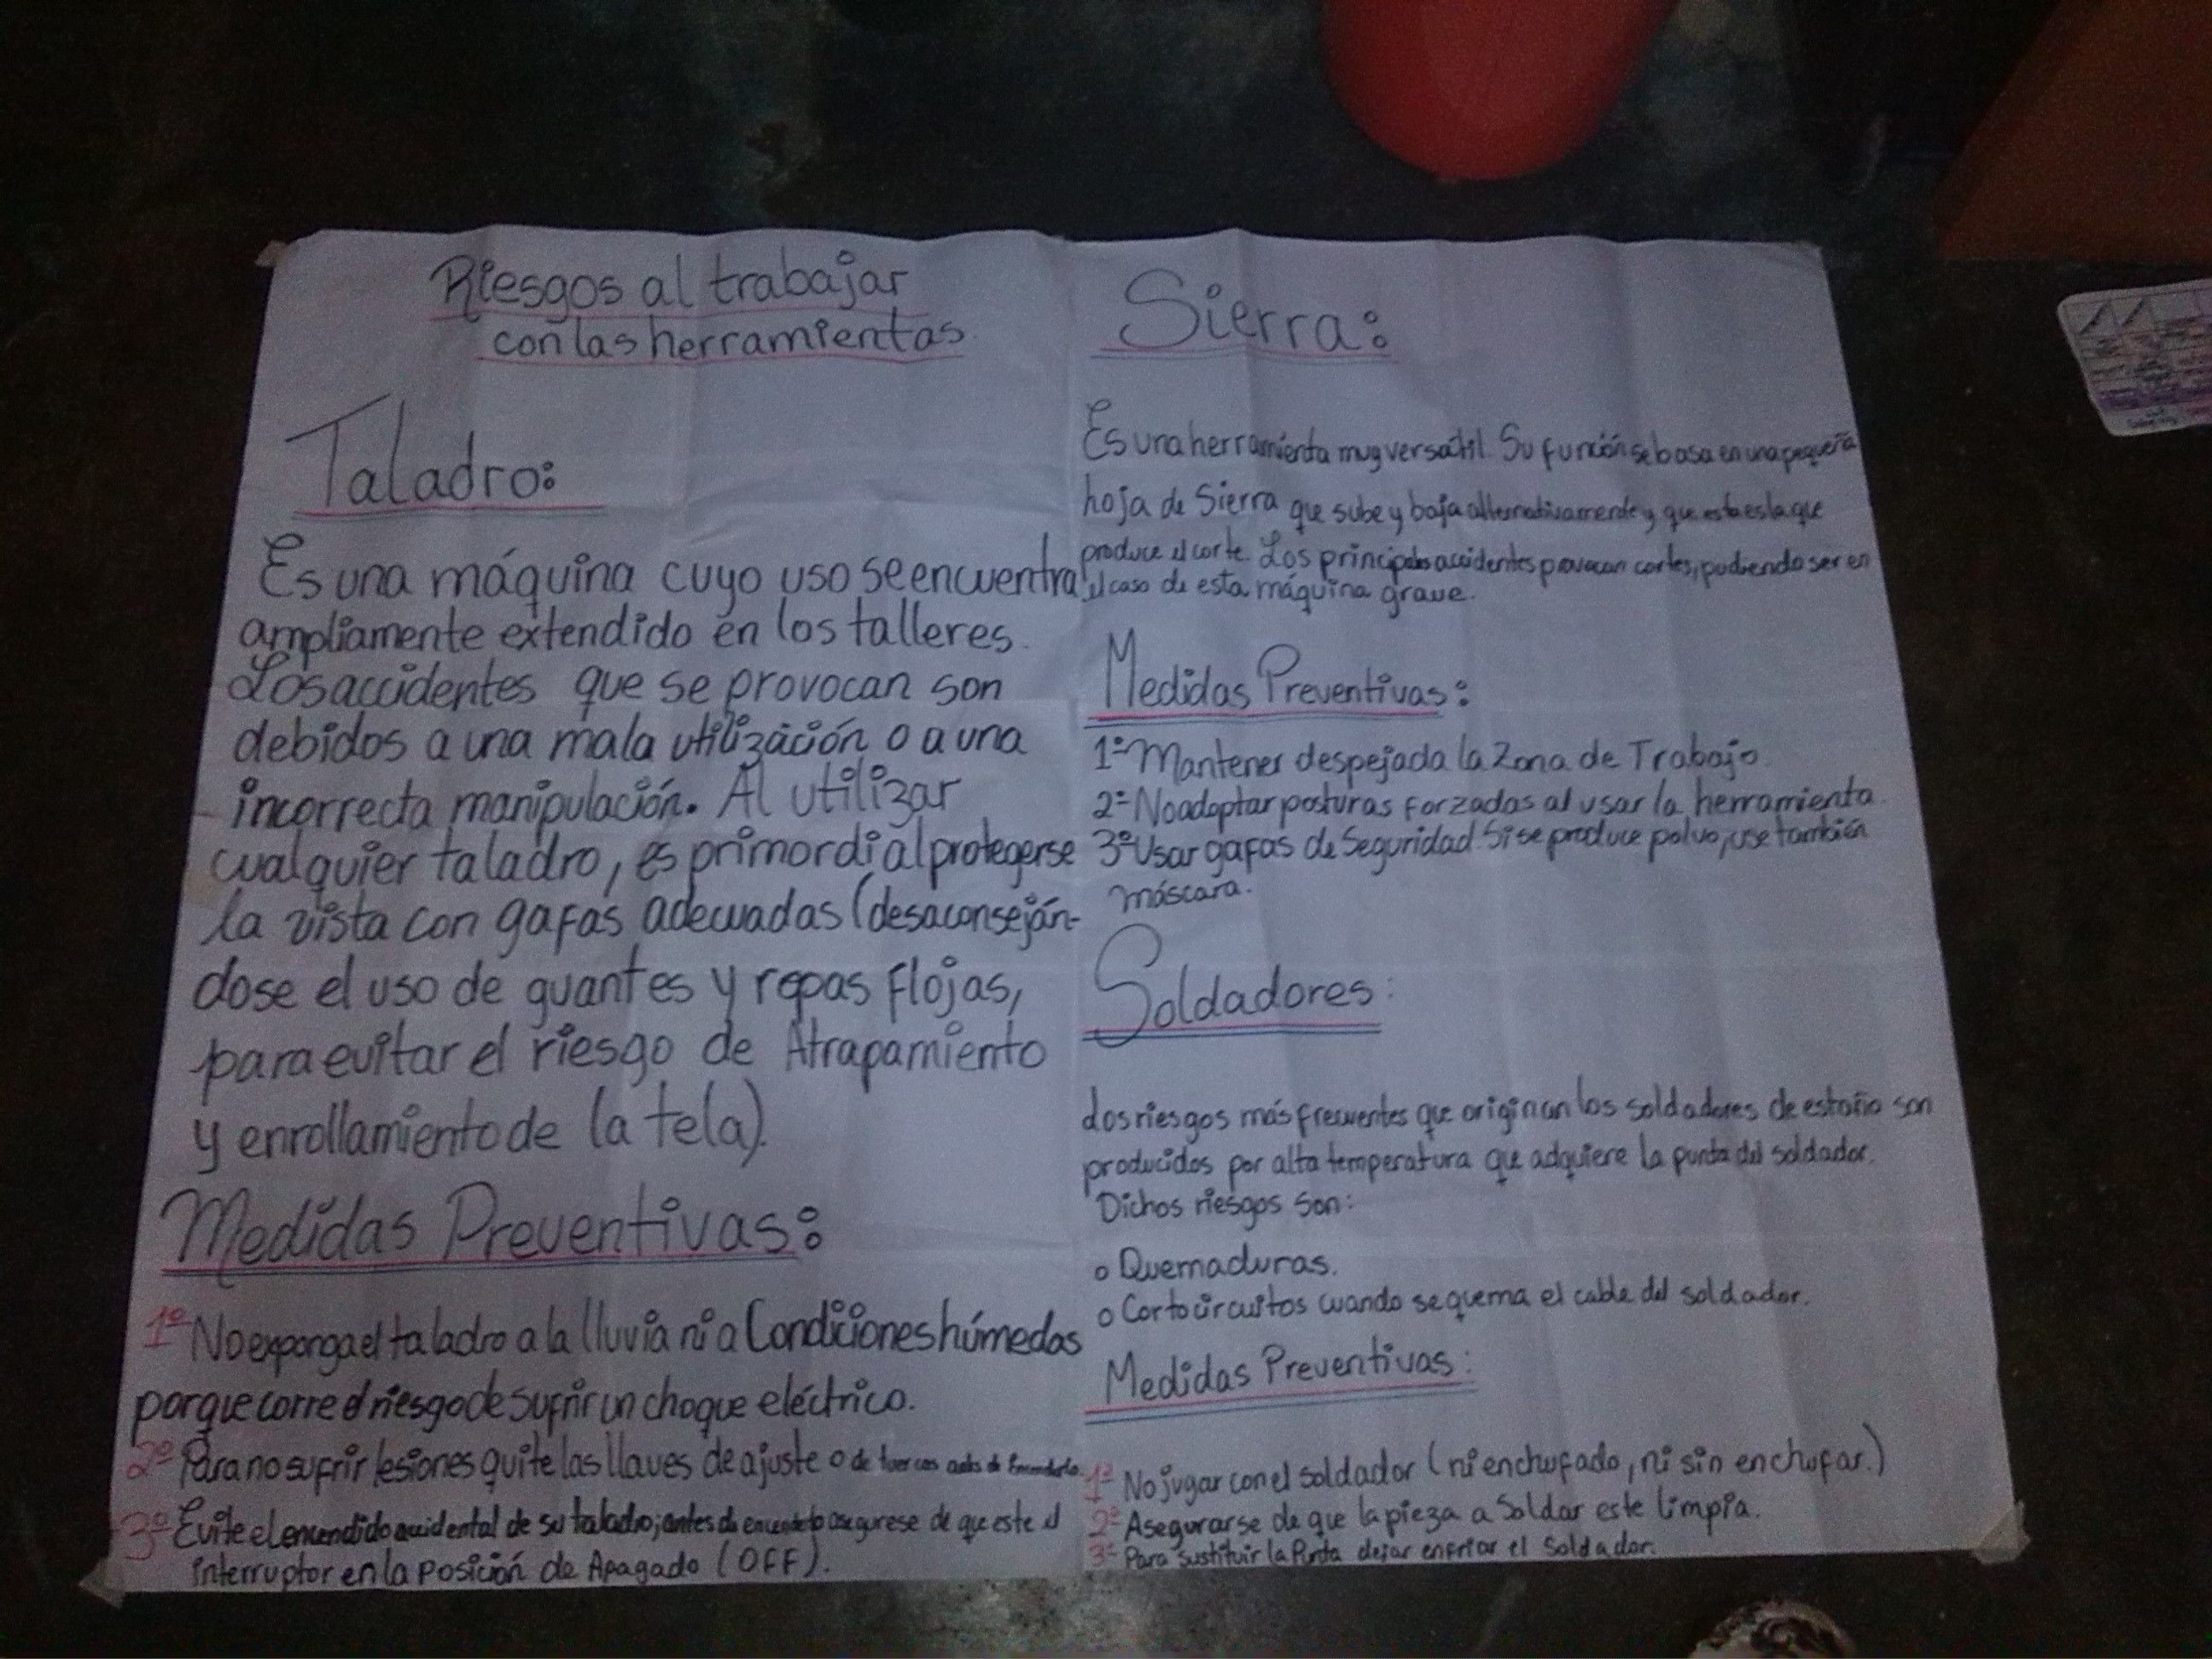 Riesgos al trabajar
con las herramientas.
Taladro:
Es una máquina cuyo uso se encuentra
ampliamente extendido en los talleres.
Los accidentes que se provocan son
debidos a una mala utilización o a una
incorrecta manipulación. Al utilizar
cualquier taladro, es primordial protegerse
la vista con gafas adecuadas (desaconseján-
dose el uso de guantes y ropas flojas,
para evitar el riesgo de Atrapamiento
y enrollamiento de la tela).
Medidas Preventivas:
1º No exponga el taladro a la lluvia ni a Condiciones húmedas
porque corre el riesgo de sufrir un choque eléctrico.
2º Para no sufrir lesiones quite las llaves de ajuste o de tuercas antes de
3º Evite el encendido accidental de su taladro, antes de asegurese de que este el
interruptor en la posición de Apagado (OFF).
Sierra:
Es una herramienta muy versatil. Su función se basa en una pequeña
hoja de Sierra que sube y baja alternativamente y que esta es la que
produce el corte. Los principales accidentes provocan cortes, pudiendo ser en
el caso de esta máquina grave.
Medidas Preventivas:
1º Mantener despejada la Zona de Trabajo.
2º No adoptar posturas forzadas al usar la herramienta.
3º Usar gafas de Seguridad. Si se produce polvo, use también
máscara.
Soldadores:
Los riesgos más frecuentes que originan los soldadores de estaño son
producidos por alta temperatura que adquiere la punta del soldador.
Dichos riesgos son:
o Quemaduras.
o Cortocircuitos cuando se quema el cable del soldador.
Medidas Preventivas:
1º No jugar con el soldador (ni enchufado, ni sin enchufar.)
2º Asegurarse de que la pieza a Soldar este limpia.
3º Para sustituir la Punta dejar enfriar el Soldador.